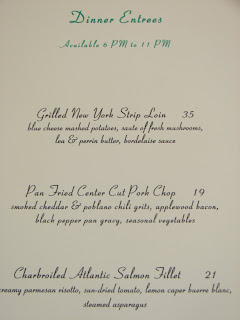 Dinner Entrees
Available 6 PM to 11 PM
Grilled New York Strip Loin 35
blue cheese mashed potatoes, saute of fresh mushrooms,
lea & perrin butter, bordelaise sauce
Pan Fried Center Cut Pork Chop 19
smoked cheddar & poblano chili grits, applewood bacon,
black pepper pan gravy, seasonal vegetables
Charbroiled Atlantic Salmon Fillet 21
creamy parmesan risotto, sun-dried tomato, lemon caper buerre blanc,
steamed asparagus